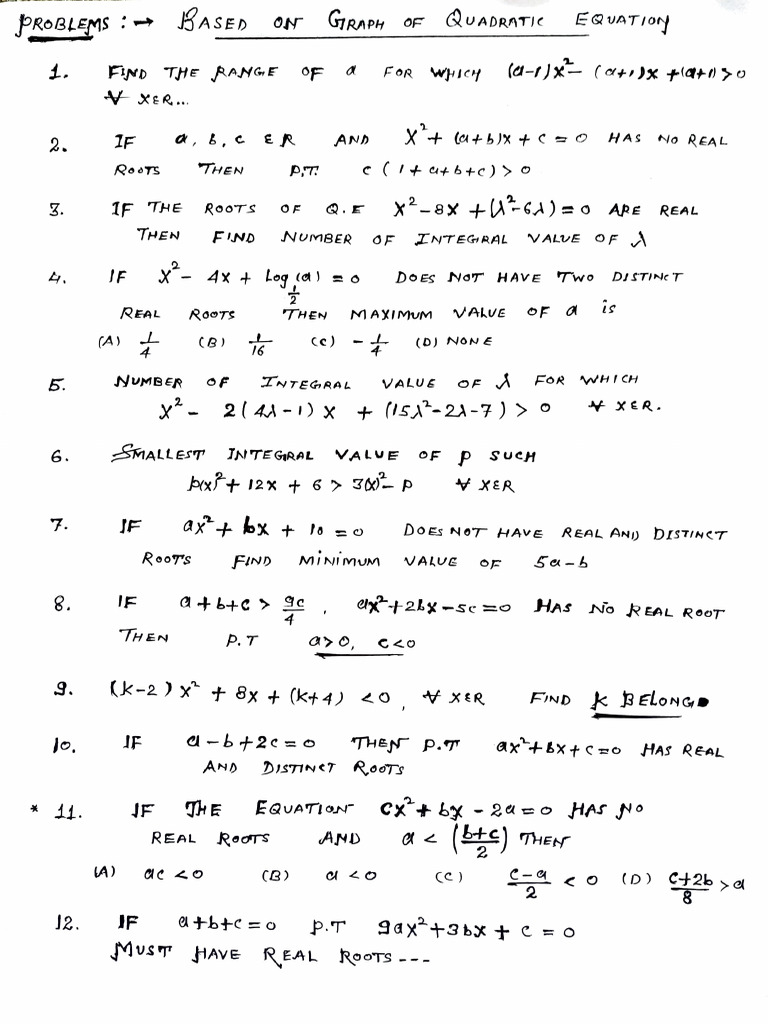 PROBLEMS :→ BASED ON GRAPH OF QUADRATIC EQUATION
1. FIND THE RANGE OF a FOR WHICH (a-1)x² - (a+1)x + (a+1) > 0
∀ XER...
2. IF a, b, c ∈ R AND X² + (a+b)x + c = 0 HAS NO REAL
ROOTS THEN P.T. c (1 + a+b+c) > 0
3. IF THE ROOTS OF Q.E X² - 8X + (λ² - 6λ) = 0 ARE REAL
THEN FIND NUMBER OF INTEGRAL VALUE OF λ
4. IF X² - 4X + Log_{1/2}(a) = 0 DOES NOT HAVE TWO DISTINCT
REAL ROOTS THEN MAXIMUM VALUE OF a is
(A) 1/4 (B) 1/16 (C) - 1/4 (D) NONE
5. NUMBER OF INTEGRAL VALUE OF λ FOR WHICH
X² - 2(4λ-1)X + (15λ² - 2λ - 7) > 0 ∀ XER.
6. SMALLEST INTEGRAL VALUE OF p SUCH
p(x)² + 12x + 6 > 3(x)² - p ∀ XER
7. IF ax² + bx + 10 = 0 DOES NOT HAVE REAL AND DISTINCT
ROOTS FIND MINIMUM VALUE OF 5a - b
8. IF a + b + c > 9c/4, ax² + 2bx - 5c = 0 HAS NO REAL ROOT
THEN P.T a > 0, c < 0
9. (K-2)x² + 8x + (K+4) < 0, ∀ XER FIND K BELONG
10. IF a - b + 2c = 0 THEN P.T ax² + bx + c = 0 HAS REAL
AND DISTINCT ROOTS
* 11. IF THE EQUATION cx² + bx - 2a = 0 HAS NO
REAL ROOTS AND a < (b+c/2) THEN
(A) ac < 0 (B) a < 0 (C) c-a/2 < 0 (D) c+2b/8 > a
12. IF a+b+c = 0 P.T 9ax² + 3bx + c = 0
MUST HAVE REAL ROOTS ---